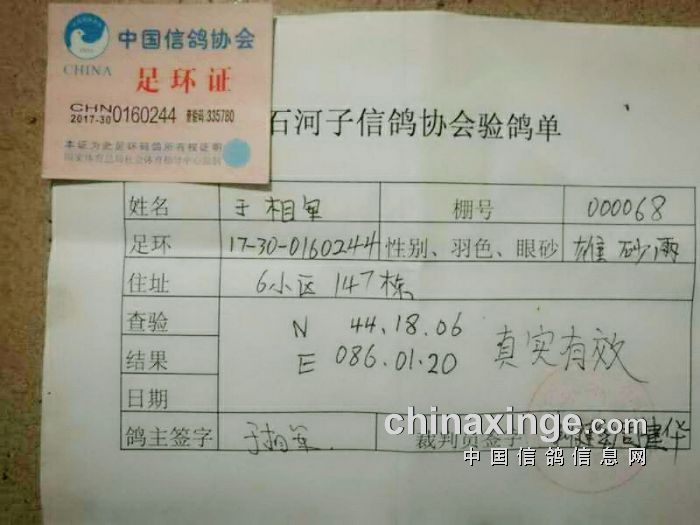 中国信鸽协会
CHINA
足环证
CHN
2017-30 0160244 密码:335780
本证为此足环信鸽所有权证明
国家体育总局社会体育指导中心监制
石河子信鸽协会验鸽单
姓名 于相军 棚号 000068
足环 17-30-0160244 性别、羽色、眼砂 雄 砂 雨
住址 6小区 147栋
查验 N 44.18.06
结果 E 086.01.20 真实有效
日期
鸽主签字 于相军 裁判员签字 建华
chinaxinge.com
中国信鸽信息网